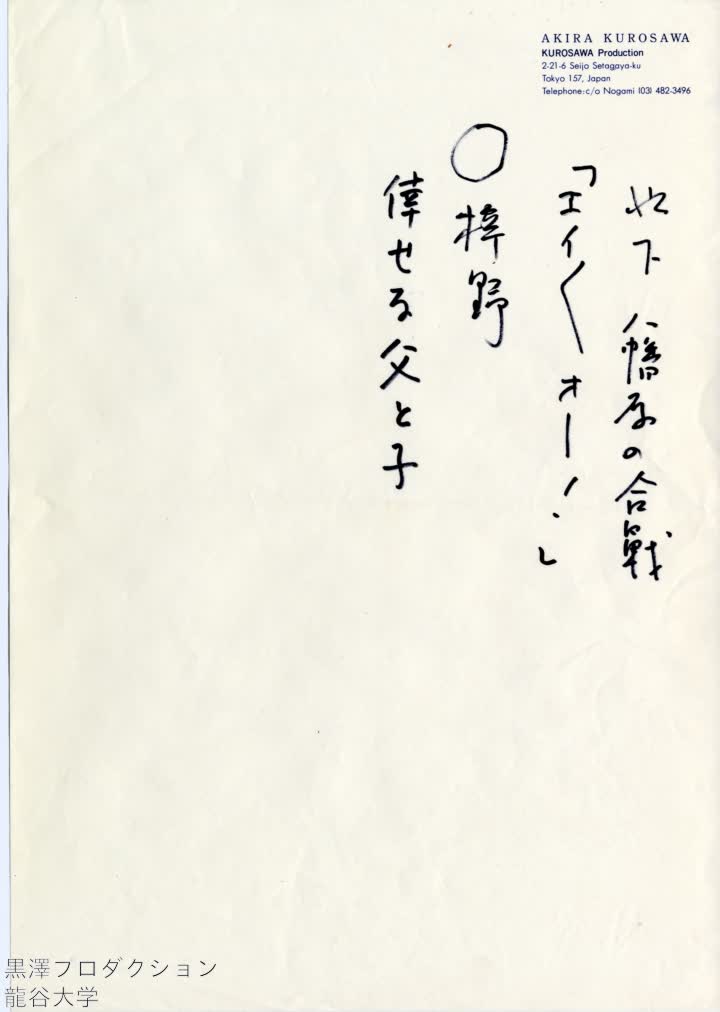 AKIRA KUROSAWA
KUROSAWA Production
2-21-6 Seijo Setagaya-ku
Tokyo 157, Japan
Telephone:c/o Nogami (03) 482-3496
以下 八幡原の合戦
「エイ〳〵オー！」
○ 梓野
倖せな父と子
黒澤プロダクション
龍谷大学